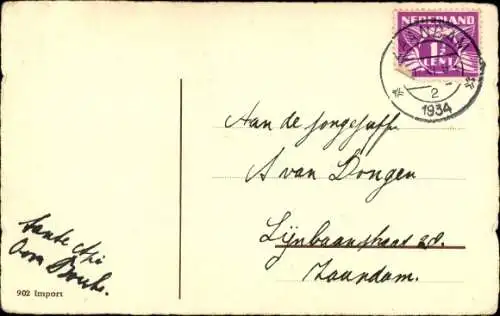 NEDERLAND
1½
CENT
ZAANDAM
2
1934
Aan de Jongejuffr.
A van Dongen
Lijnbaanstraat 28.
Zaandam.
tante
Oom
902 Import